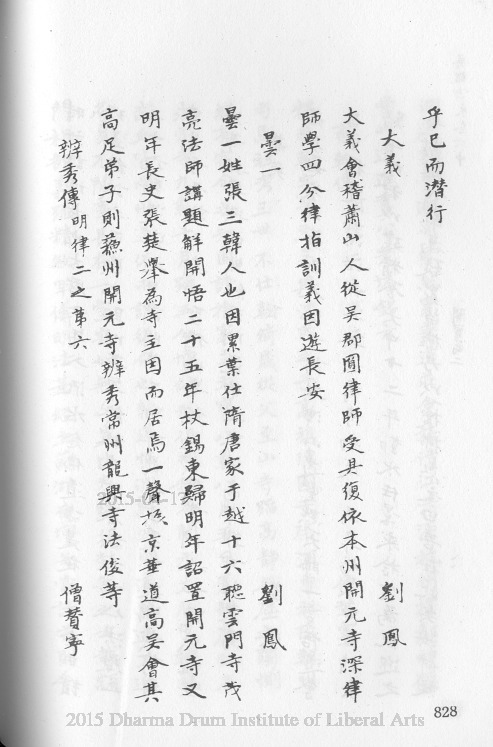 乎已而潛行
大義　劉鳳
大義會稽蕭山人從吳郡圓律師受具復依本州開元寺深律
師學四分律指訓義因遊長安
曇一　劉鳳
曇一姓張三韓人也因累葉仕隋唐家于越十六聽雲門寺茂
亮法師講題解開悟二十五年杖錫東歸明年詔置開元寺又
明年長史張楚舉為寺主因而居焉一聲振京華道高吳會其
高足弟子則蘇州開元寺辨秀常州龍興寺法俊等
辨秀傳明律二之第六　僧贊寧
828
2015 Dharma Drum Institute of Liberal Arts